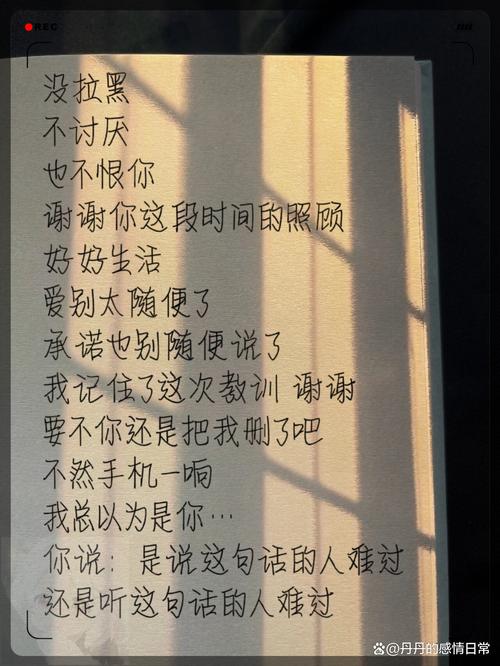 REC
没拉黑
不讨厌
也不恨你
谢谢你这段时间的照顾
好好生活
爱别太随便了
承诺也别随便说了
我记住了这次教训 谢谢
要不你还是把我删了吧
不然手机一响
我总以为是你…
你说：是说这句话的人难过
还是听这句话的人难过
@丹丹的感情日常